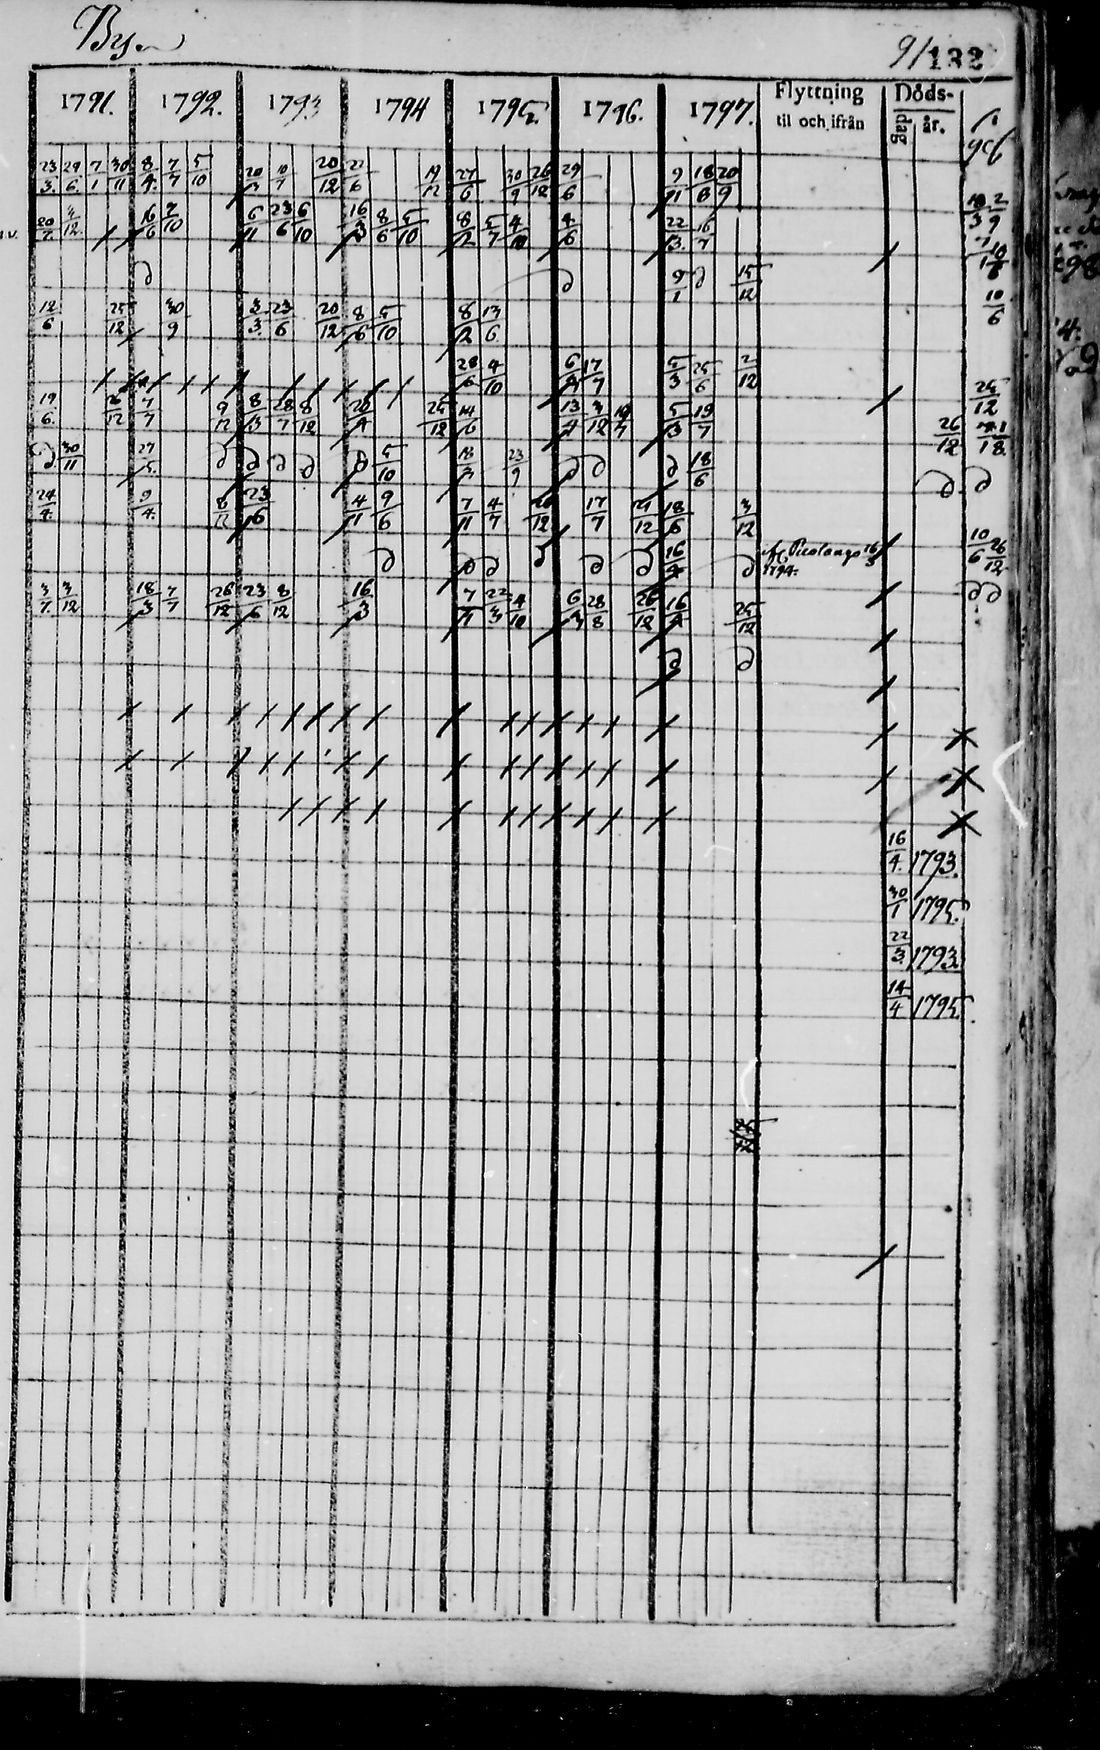 By
9/132
1791. 1792. 1793 1794 1795. 1796. 1797. Flyttning til och ifrån Döds- dag år.
23/3. 29/6. 7/1 30/11 8/4. 7/7 5/10 10/7 20/12 22/6 19/12 27/6 30/9 26/12 29/6 9/11 18/8 20/9
20/7. 16/6 2/10 6/11 23/6 6/10 16/3 8/6 5/10 8/2 5/7 4/10 4/6 22/3. 16/7
d d 9/1 d 15/12
12/6 25/12 30/9 3/3. 23/6 20/12 8/6 5/10 8/2 13/6 10/6
28/6 4/10 6/4 17/7 5/3 25/6 2/12
19/6. 26/12 7/7 9/12 8/3 28/7 8/12 25/12 14/6 13/4 3/12 19/7 5/3 19/7 26/12
d 30/11 27/5. d d d d d 5/10 18/3 23/9 d d d 18/6 d d
24/4. 9/4. 8/12 23/6 4/11 9/6 7/11 4/7 26/12 17/7 21/12 18/6 3/12
d d d d d d 16/4 d 1794. 10/6 26/12
3/7. 3/12 18/3 7/7 26/12 23/6 8/12 16/3 7/11 22/3 4/10 6/3 28/8 26/12 16/4 25/12 d d
d d
16/4. 1793.
30/1 1795.
22/3. 1793
14/4 1795.